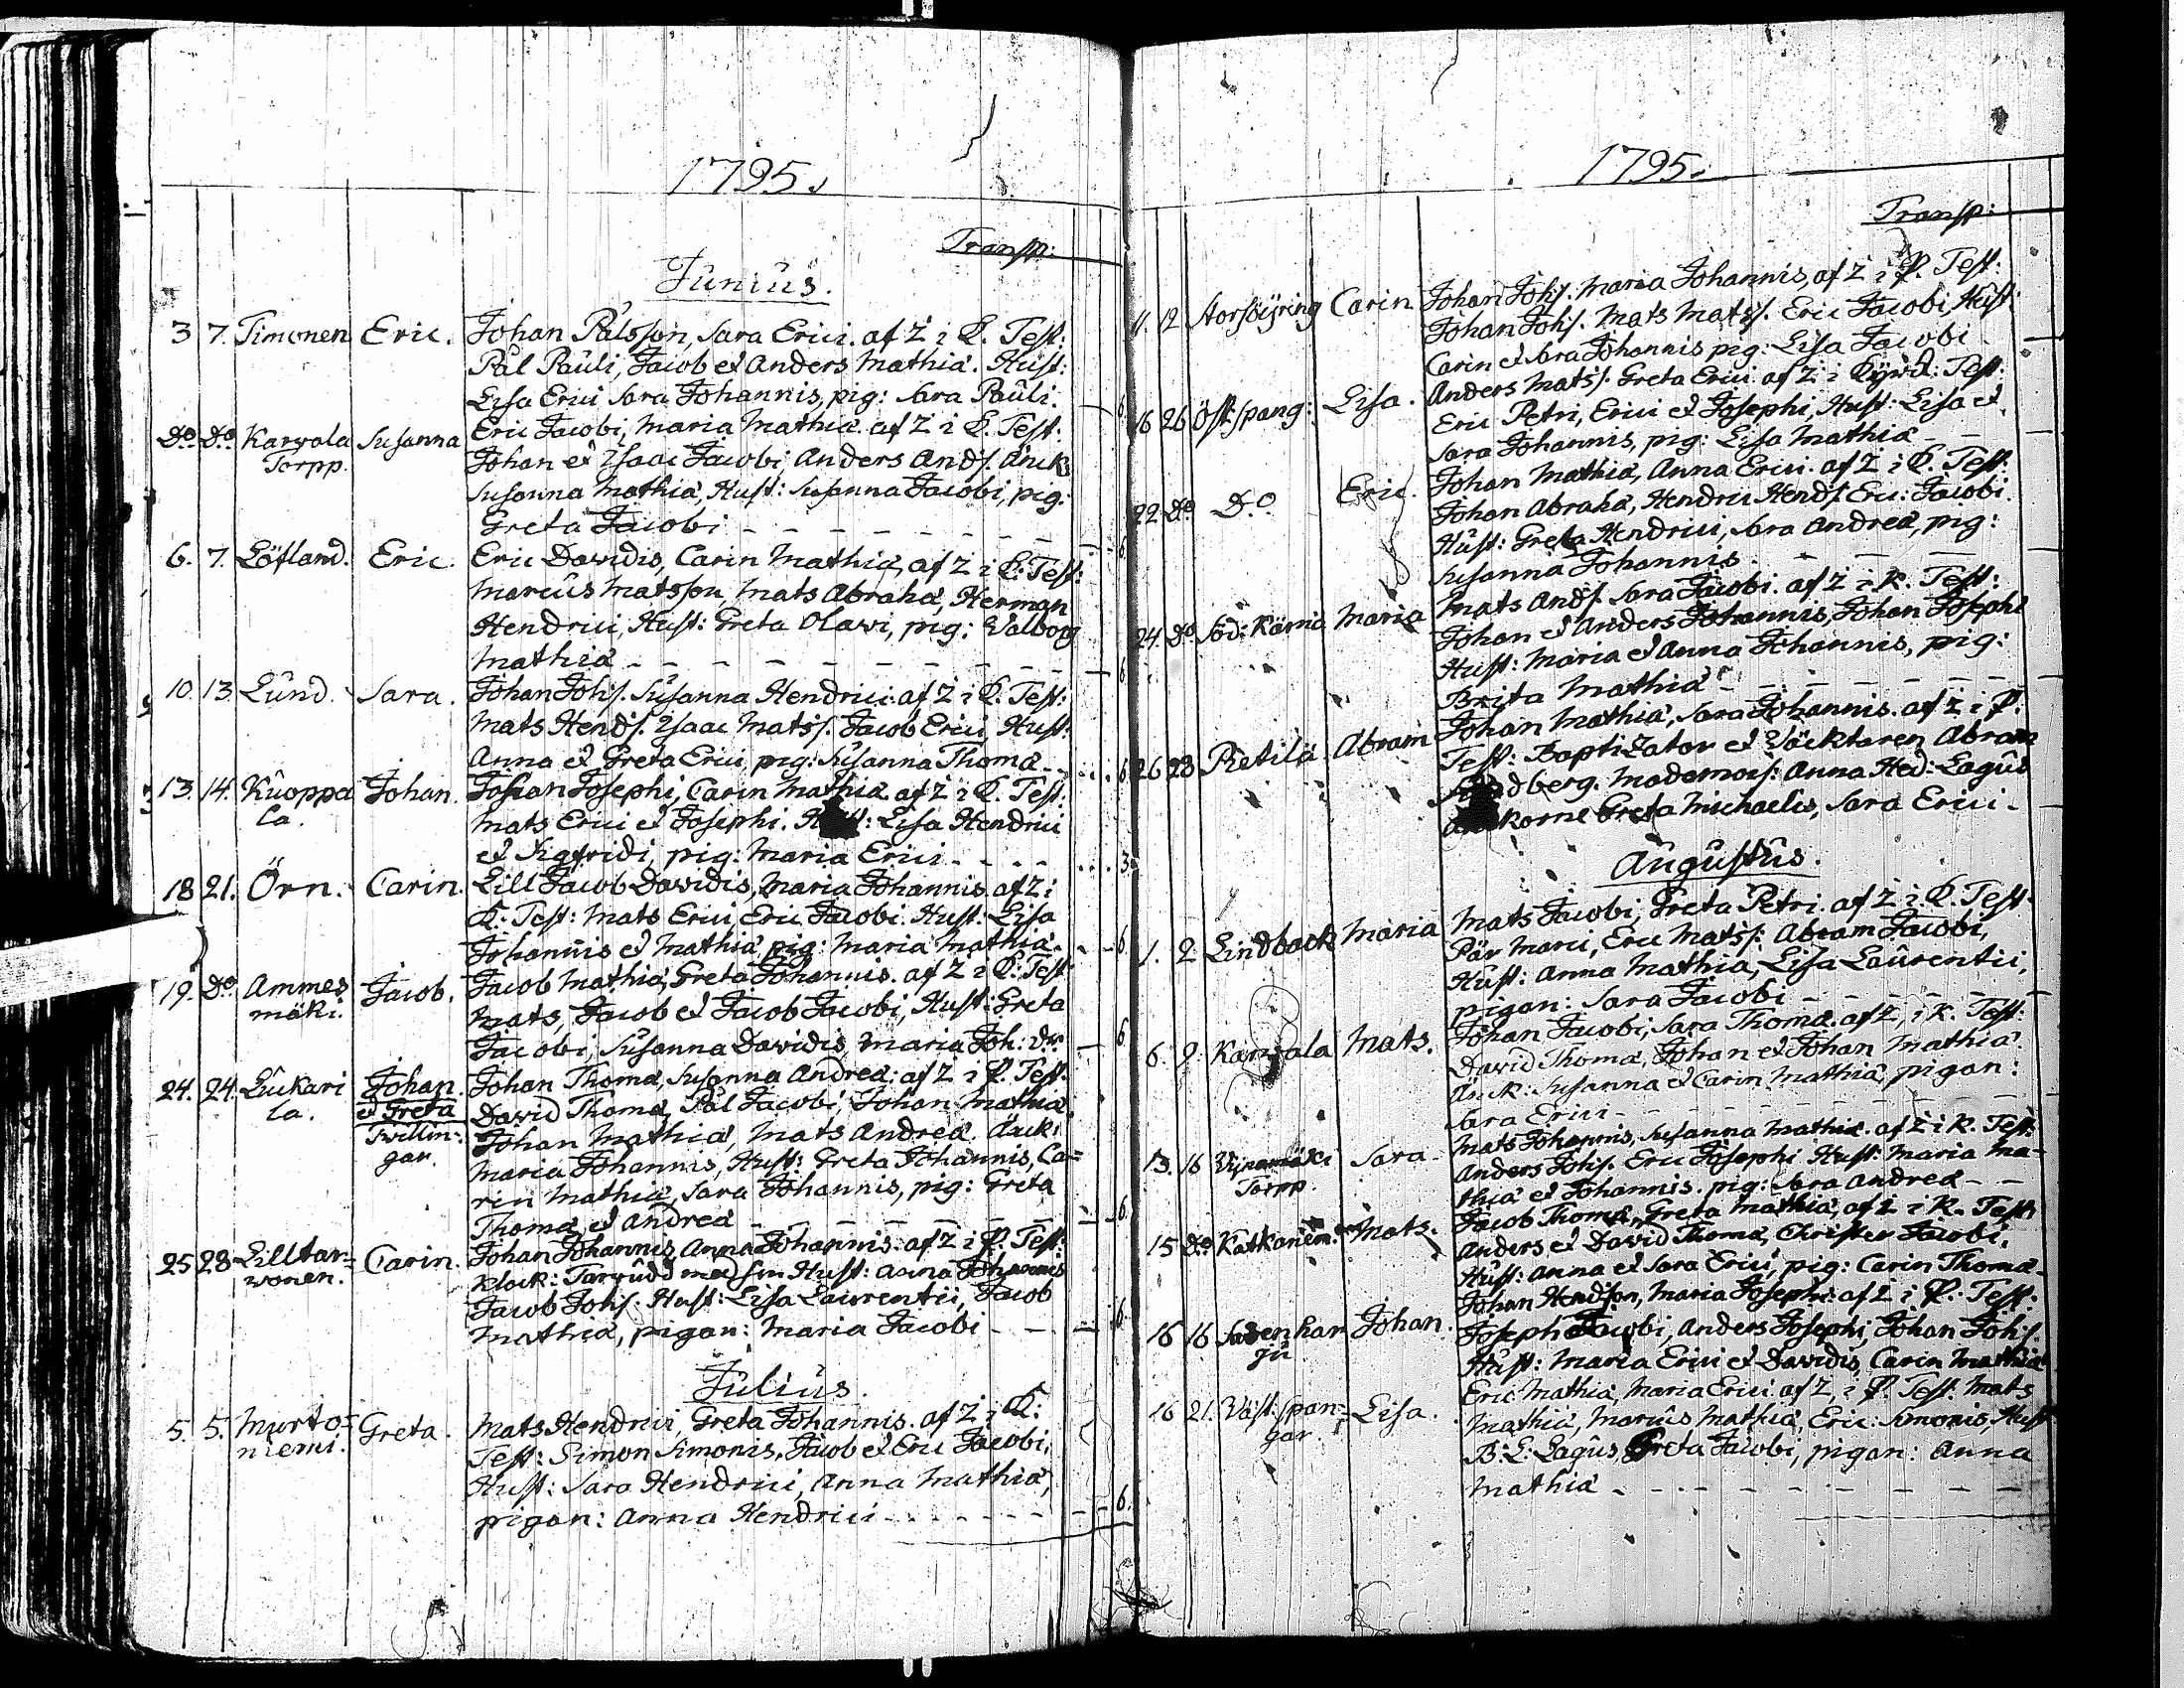 1795.
Transp:
Junius.
3 7. Timonen Eric. Johan Pålsson, Sara Erici. af Z i K. Test:
Pål Pauli, Jacob et Anders Mathiæ. Hust:
Lisa Erici Sara Johannis, pig: Sara Pauli. 6.
Do Do Karvala Susanna Eric Jacobi, Maria Mathiæ. af Z i K. Test:
Torpp. Johan et Isaac Jacobi Anders Ands. Änck
Susanna Mathiæ, Hust: Susanna Jacobi, pig:
Greta Jacobi - - - 6
6. 7. Löfland. Eric. Eric Davidis, Carin Mathiæ, af Z i K: Test:
Marcus Matsson, Mats Abraha, Herman
Hendrici, Hust: Greta Olavi, pig: Valborg
Mathiæ - - - 6
10. 13. Lund. Sara. Johan Johs. Susanna Hendrici. af Z i K. Test:
Mats Hends. Isaac Matss. Jacob Erici, Hust:
Anna et Greta Erici, pig: Susanna Thomæ - 6
13. 14. Kuoppa Johan. Johan Josephi, Carin Mathiæ. af Z i K. Test:
la. Mats Erici et Josephi. Hust: Lisa Hendrici
et Sigfridi, pig: Maria Erici - - - 3.
18 21. Örn. Carin. Lill Jacob Davidis, Maria Johannis. af Z i
K: Test: Mats Erici, Eric Jacobi. Hust: Lisa
Johannis et Mathiæ, pig: Maria Mathiæ. - 6
19. Do Ammes Jacob. Jacob Mathiæ, Greta Johannis. af Z i K: Test:
mäki. Mats, Jacob et Jacob Jacobi, Hust: Greta
Jacobi, Susanna Davidis, Maria Joh: dr. - 6
24. 24. Luukari Johan. Johan Thomæ, Susanna Andreæ: af Z i P. Test:
la. et Greta David Thomæ, Pål Jacobi, Johan Mathiæ.
Tvillin: Johan Mathiæ, Mats Andreæ. Änck:
gar. Maria Johannis, Hust: Greta Johannis, Ca=
rin Mathiæ, Sara Johannis, pig: Greta
Thomæ et Andreæ - - - 6.
25 28 Lilltar= Carin. Johan Johannis, Anna Johannis. af Z i P. Test:
vonen. Klock: Tarvudd med sin Hust: Anna Johannis
Jacob Johs. Hust: Lisa Laurentii, Jacob
Mathiæ, pigan: Maria Jacobi - - - 6.
Julius.
5. 5. Murto= Greta. Mats Hendrici, Greta Johannis. af Z i K:
niemi. Test: Simon Simonis, Jacob et Eric Jacobi,
Hust: Sara Hendrici, Anna Mathiæ,
pigan: Anna Hendrici - - - 6.
1795.
Transp:
11. 12 Carin Johan Johs. Maria Johannis, af Z i P. Test:
Johan Johs. Mats Matss. Eric Jacobi, Hust:
Carin et Sara Johannis pig: Lisa Jacobi -
16 26 Öst:spang: Lisa. Anders Matss. Greta Erici af Z i Test:
Eric Petri, Erici et Josephi, Hust: Lisa et
Sara Johannis, pig: Lisa Mathiæ - -
22 Do Do Eric. Johan Mathiæ, Anna Erici. af Z i K. Test:
Johan Abraha, Hendric Hends. Eric: Jacobi.
Hust: Greta Hendrici, Sara Andreæ, pig:
Susanna Johannis. - - -
24. Do Söd: Kärnä Maria Mats Ands. Sara Jacobi. af Z i K. Test:
Johan et Anders Johannis, Johan Josephi
Hust: Maria et Anna Johannis, pig:
Brita Mathiæ - - -
26 28 Pietilä Abram Johan Mathiæ, Sara Johannis. af Z i P.
Test: Baptizator et Abram
berg. Mademois: Anna Hed: Lagus
Greta Michaelis, Sara Erici -
Augustus.
1. 2 Lindback Maria Mats Jacobi, Greta Petri. af Z i K. Test:
Pär Marci, Eric Matss: Abram Jacobi,
Hust: Anna Mathiæ, Lisa Laurentii,
pigan: Sara Jacobi - - -
6. 9. Karvala Mats. Johan Jacobi, Sara Thomæ. af Z, i K. Test:
David Thomæ, Johan et Johan Mathiæ.
Änck: Susanna et Carin Mathiæ, pigan:
Sara Erici - - -
13. 16 Sara. Mats Johannis, Susanna Mathiæ. af Z i K. Test:
Torpp. Anders Johs. Eric Josephi Hust: Maria Ma-
thiæ et Johannis. pig: Sara Andreæ - -
15 Do Katkaniem: Mats. Jacob Thomæ, Greta Mathiæ, af Z i K. Test:
Anders et David Thomæ, Christer Jacobi,
Hust: Anna et Sara Erici, pig: Carin Thomæ -
16 16 Johan. Johan Hendson, Maria Josephi. af Z i P. Test:
ju Joseph Jacobi, Anders Josephi, Johan Johs.
Hust: Maria Erici et Davidis, Carin Mathiæ
16 21. Väst:span= Lisa. Eric Mathiæ, Maria Erici af Z, i P. Test: Mats
gar. Mathiæ, Marcus Mathiæ, Eric: Simonis, Hust
B: E: Lagus, Greta Jacobi, pigan: Anna
Mathiæ - - -